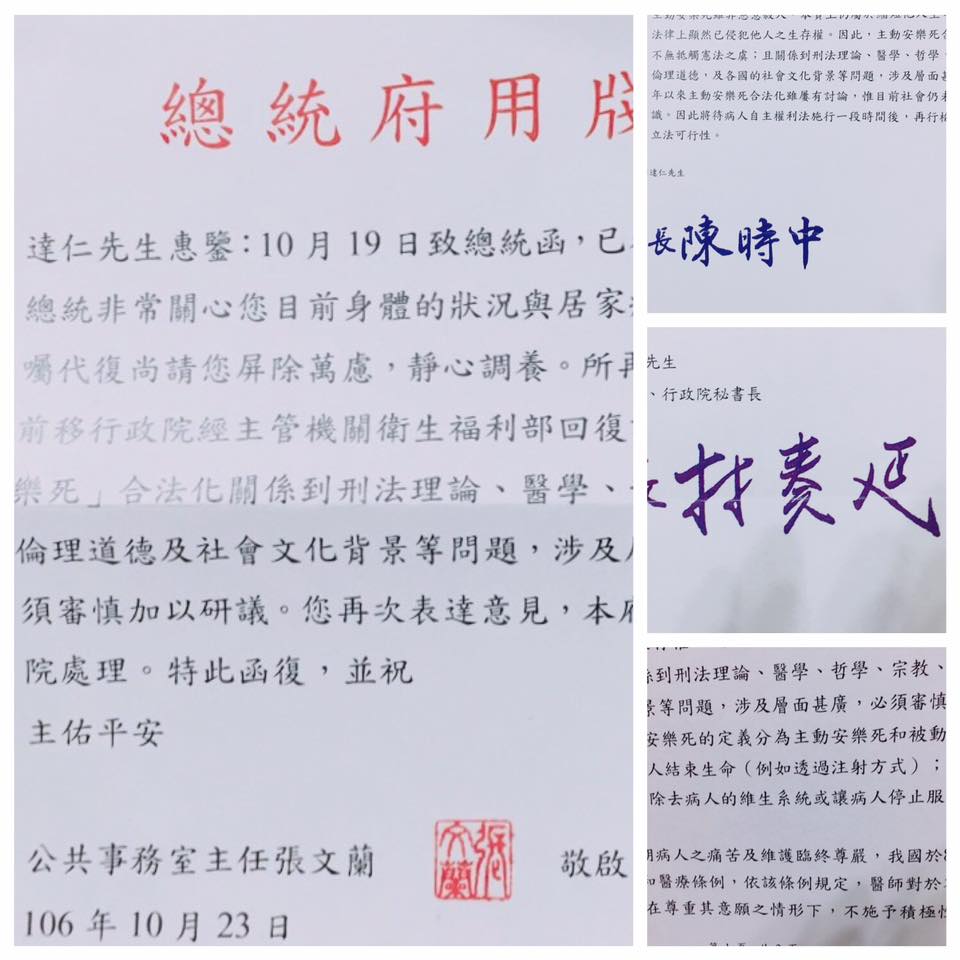 總統府用
達仁先生惠鑒：10月19日致總統函，已
總統非常關心您目前身體的狀況與居家
囑代復尚請您屏除萬慮，靜心調養。所再
前移行政院經主管機關衛生福利部回復
樂死」合法化關係到刑法理論、醫學、
倫理道德及社會文化背景等問題，涉及
須審慎加以研議。您再次表達意見，本府
院處理。特此函復，並祝
主佑平安
公共事務室主任張文蘭
張文蘭
敬啟
106年10月23日
法律上顯然已侵犯他人之生存權。因此，主動安樂死合
不無牴觸憲法之虞；且關係到刑法理論、醫學、哲學、
倫理道德，及各國的社會文化背景等問題，涉及層面甚
年以來主動安樂死合法化雖屢有討論，惟目前社會仍未
識。因此將待病人自主權利法施行一段時間後，再行檢
立法可行性。
達仁先生
長陳時中
先生
、行政院秘書長
林奏延
係到刑法理論、醫學、哲學、宗教、
景等問題，涉及層面甚廣，必須審慎
安樂死的定義分為主動安樂死和被動
人結束生命（例如透過注射方式）；
除去病人的維生系統或讓病人停止服
期病人之痛苦及維護臨終尊嚴，我國於
和醫療條例，依該條例規定，醫師對於
在尊重其意願之情形下，不施予積極性